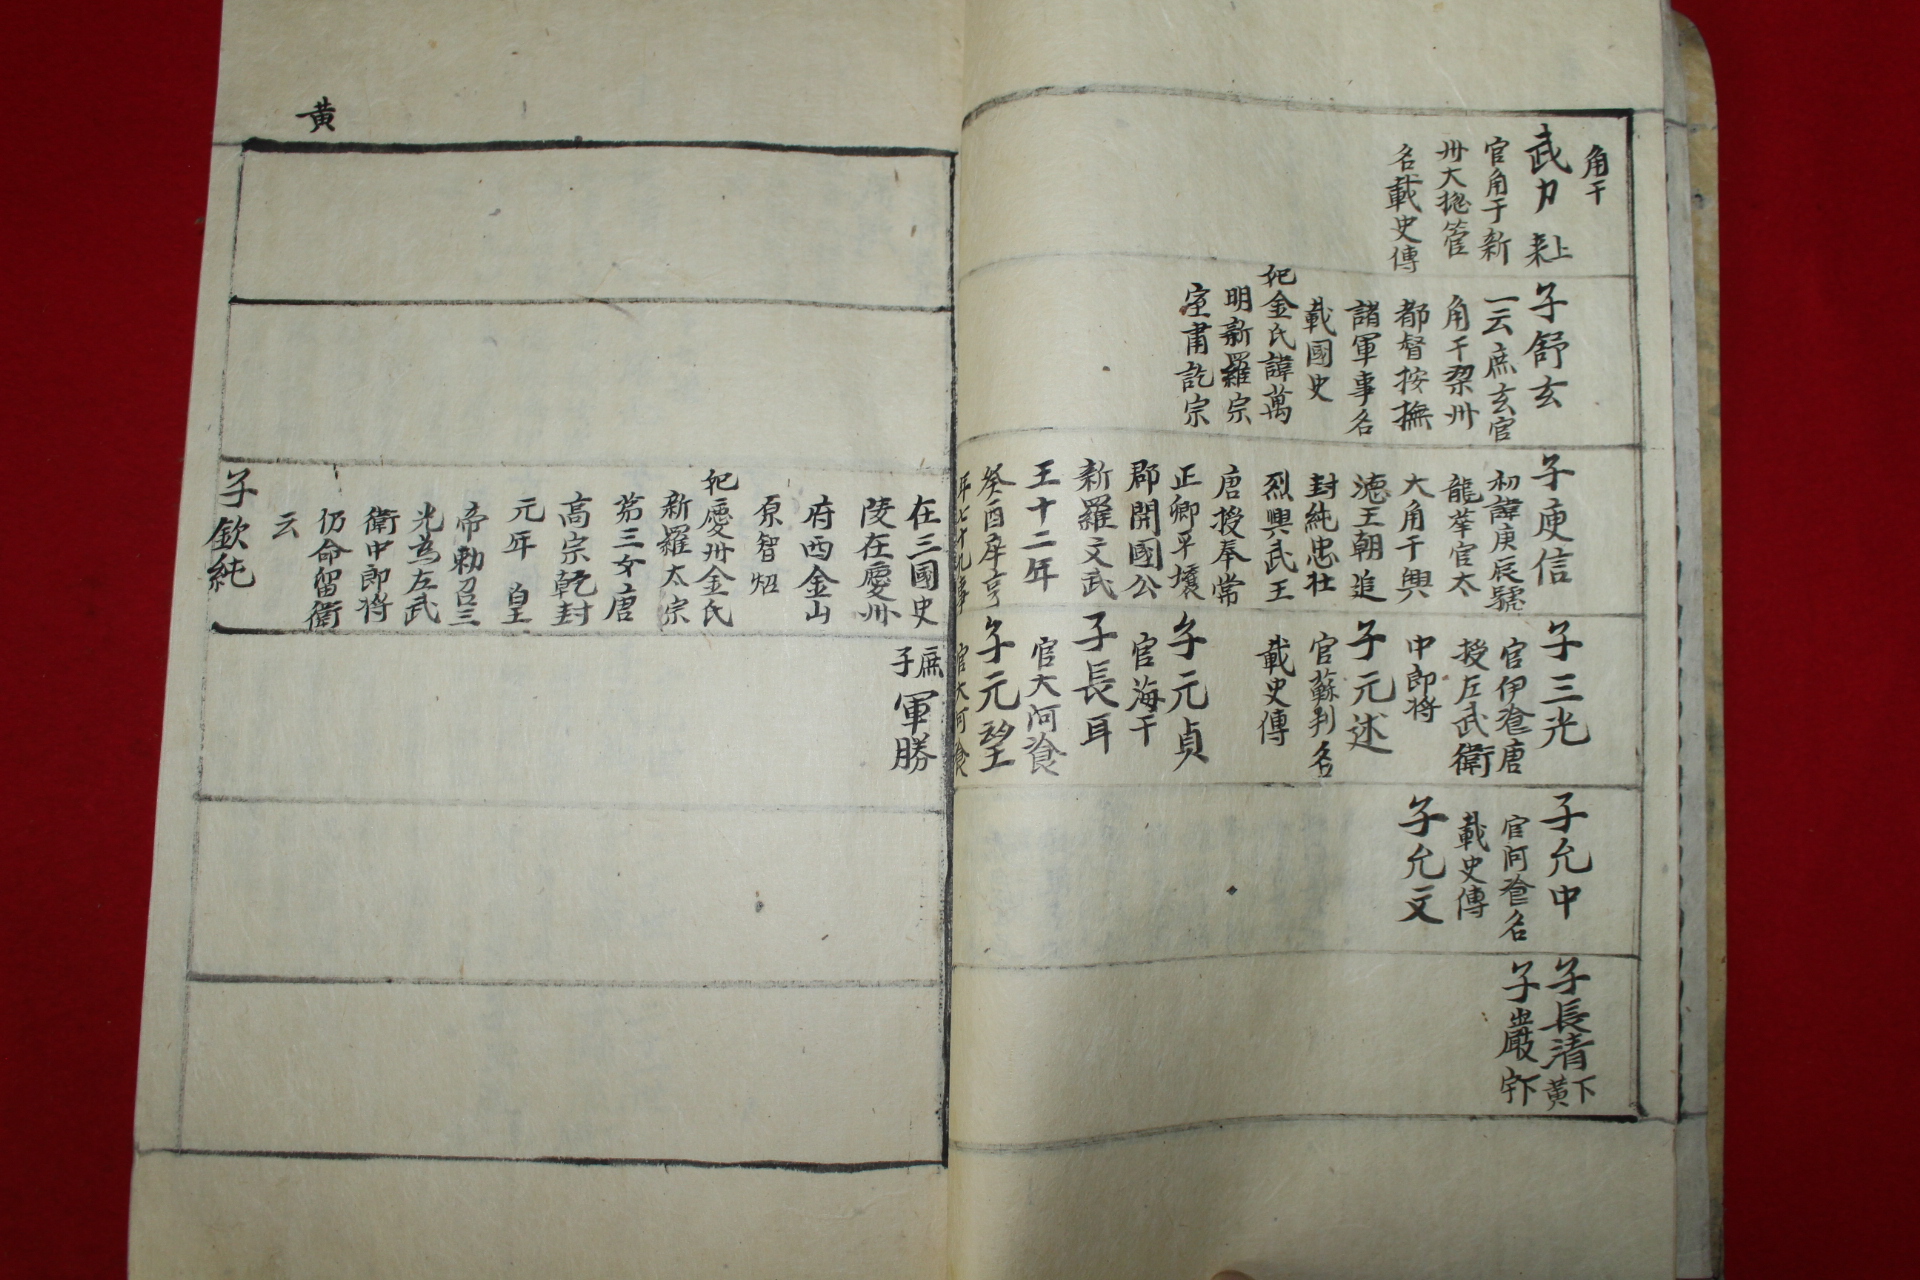 角干
武力 耒上
官角干新
州大揔管
名載史傳
子舒玄
一云庶玄官
角干梁州
都督按撫
諸軍事名
載國史
妃金氏諱萬
明新羅宗
室肅訖宗
子庾信
初諱庚辰號
龍華官太
大角干興
德王朝追
封純忠壯
烈興武王
唐授奉常
正卿平壤
郡開國公
新羅文武
王十二年
癸酉卒享
年七十九事
子三光
官伊飡唐
授左武衛
中郎将
子元述
官蘇判名
載史傳
子元貞
官海干
子長耳
官大阿飡
子元望
官大阿飡
子允中
官阿飡名
載史傳
子允文
子長清 下黃
子巖 下宇
黃
在三國史
陵在慶州
府西金山
原智炤
妃慶州金氏
新羅太宗
第三女唐
高宗乾封
元年 皇
帝勅召三
光為左武
衛中郎将
仍命留衛
云
子欽純
庶子軍勝